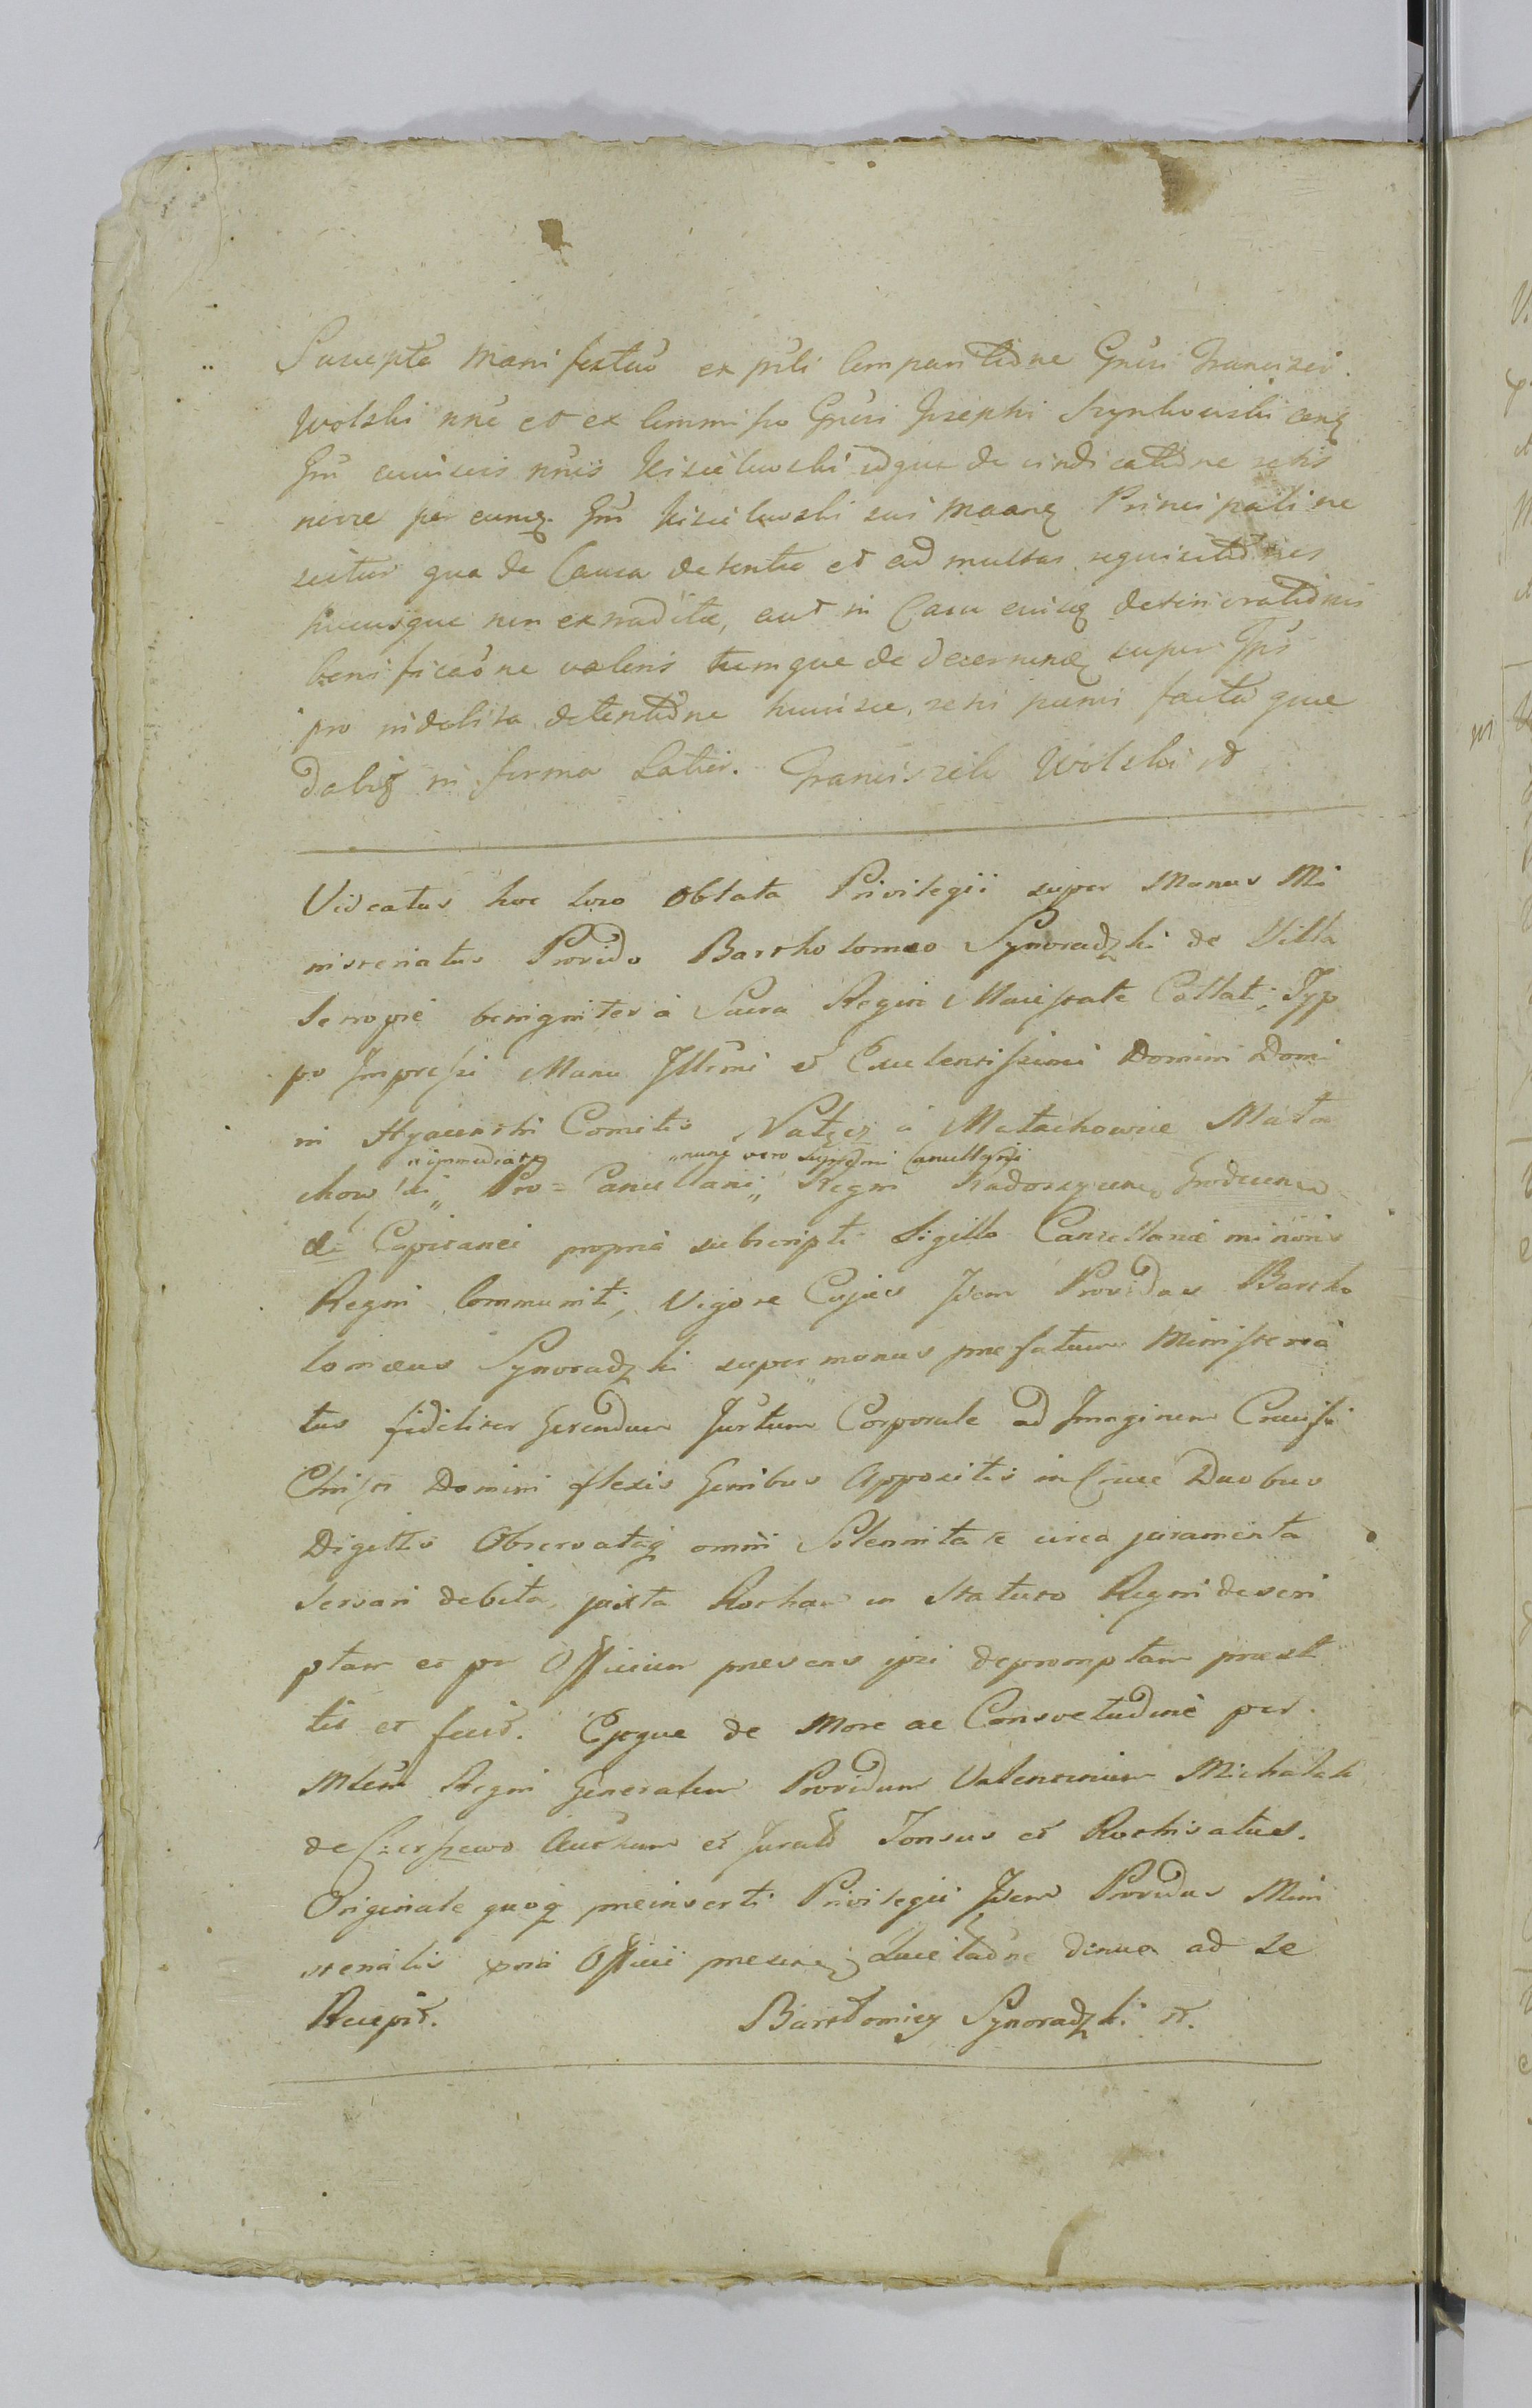 Suscepta Manifestaō ex pñli Comparitiōne Gñsi Francisci
Wolski nñe et ex Commisso Gñsi Josephi Szynkowski conq
Gm cuiuscis nñis Kisielewski idque de vindicatiōne rehis
per eumq Gm Kisielewski sui Principali ne
scitur qua de Causa detentae et ad multas requisitiōnes
hucusque non extraditae, aut in Casu eiusq deterioratiōnis
bonificaōne valoris tumque de decernenq super Ipō
pro indebita detentiōne huiusce, rehis paenis facta quae
dabiq in forma Latiori. Franciszek Wolski
Videatur hoc loco Oblata Privilegii super Munus Mi
nisteriatus Provido Bartholomeo Synoradzki de Villa
benigniter à Sacra Regia Maiestate Collati, Typ
po Impressi Manu Illřmi et Excelentissimi Domini Domi
ni Hyacinthi Comitis Nałęcz à Małachowice Mała
nunc vero Supremi Cancellarij
chowski „ Pro=Cancellarii „ Regni Radoszycen, Grodecen
Capitanei propria subscripti Sigillo Cancellariae minoris
Regni Communiti, Vigore Cujus Idem Providus Bartho
lomaeus Synoradzki super munus praefatum Ministeria
tus fideliter Gerendum Jurtum Corporale ad Imaginem Crucifi
Christi Domini flexis Genibus Appositis in Cruce Duobus
Digittis Observataq omni Solennitate circa juramenta
servari debita, juxta Rotham in Statuto Regni descri
ptam et per Officium praesens ipsi depromptam praesti
tit et fecit. Eoque de More ac Consvetudine per
Mlem Regni Generalem Providum Valentinum Michalak
de Auctum et Jurato Tonsus et Rothisatus.
Originale quoq praeinserti Privilegii Idem Providus Mini
sterialis Officii praesen Quietaōne denuo ad se
Recepit. Bartłomiey Synoradzki